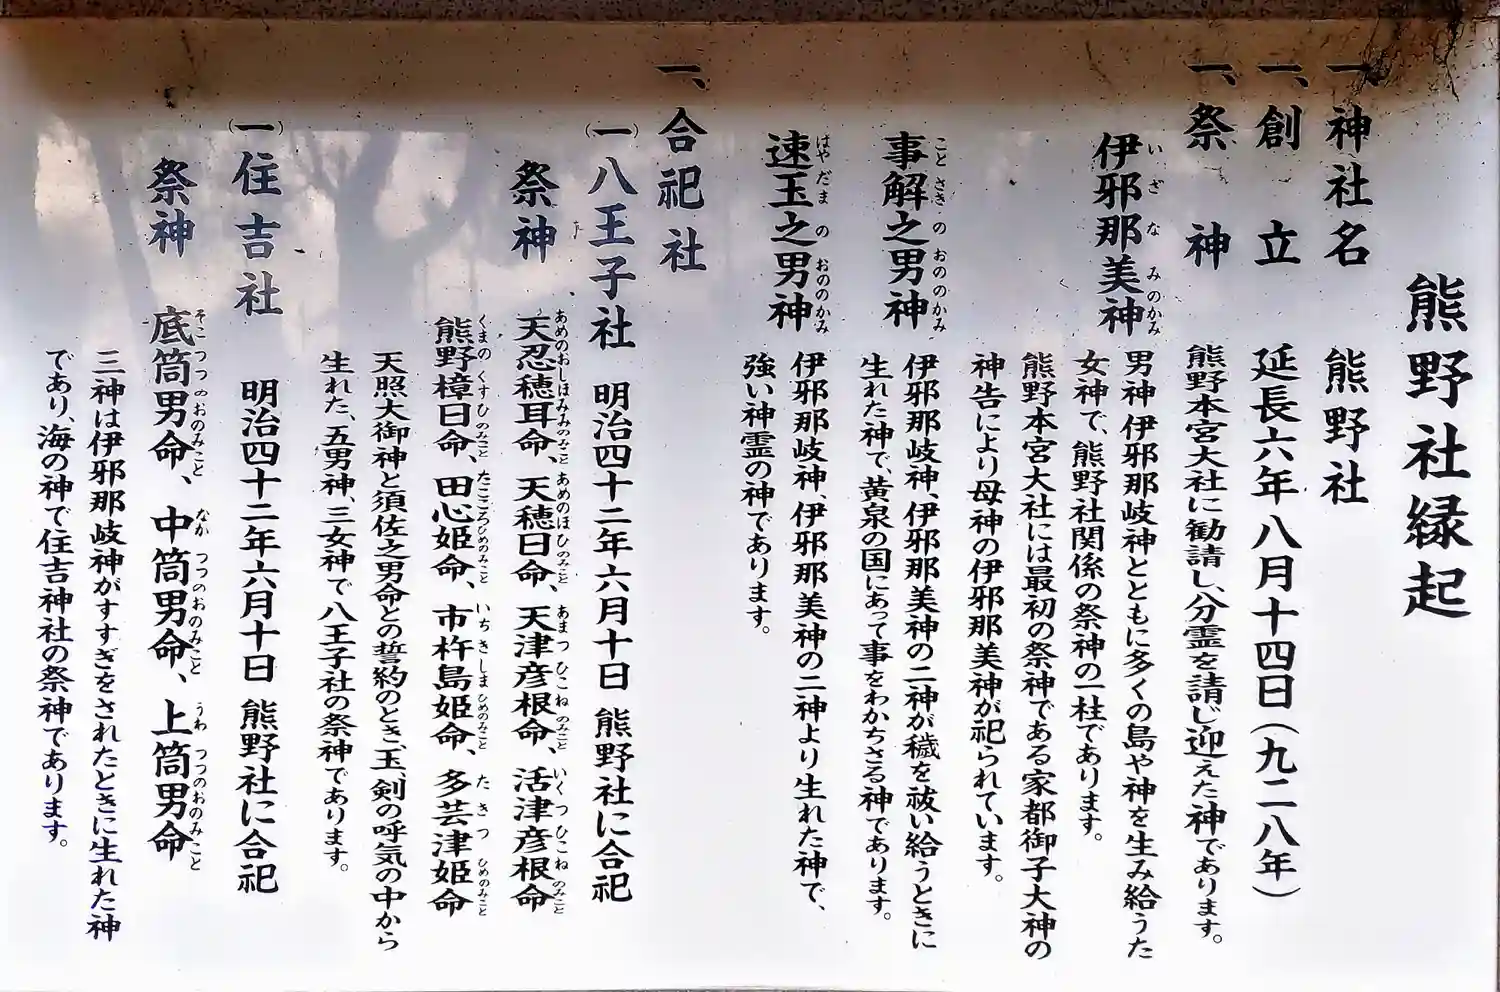 熊野社縁起
一、神社名 熊野社
一、創立 延長六年八月十四日(九二八年)
一、祭神 熊野本宮大社に勧請し、分霊を請じ迎えた神であります。
伊邪那美神 男神伊邪那岐神とともに多くの島や神を生み給うた
いざなみのかみ
女神で、熊野社関係の祭神の一柱であります。
熊野本宮大社には最初の祭神である家都御子大神の
神告により母神の伊邪那美神が祀られています。
事解之男神 伊邪那岐神、伊邪那美神の二神が穢を祓い給うときに
ことさきのおののかみ
生れた神で、黄泉の国にあって事をわかちさる神であります。
速玉之男神 伊邪那岐神、伊邪那美神の二神より生れた神で、
はやだまのおののかみ
強い神霊の神であります。
一、合祀社
(一)八王子社 明治四十二年六月十日 熊野社に合祀
祭神 天忍穂耳命、天穂日命、天津彦根命、活津彦根命
あめのおしほみみのみこと あめのほひのみこと あまつひこねのみこと いくつひこねのみこと
熊野樟日命、田心姫命、市杵島姫命、多芸津姫命
くまのくすひのみこと たこころひめのみこと いちきしまひめのみこと たきつひめのみこと
天照大御神と須佐之男命との誓約のとき、玉、剣の呼気の中から
生れた、五男神、三女神で八王子社の祭神であります。
(一)住吉社 明治四十二年六月十日 熊野社に合祀
祭神 底筒男命、中筒男命、上筒男命
そこつつのおのみこと なかつつのおのみこと うわつつのおのみこと
三神は伊邪那岐神がすすぎをされたときに生れた神
であり、海の神で住吉神社の祭神であります。